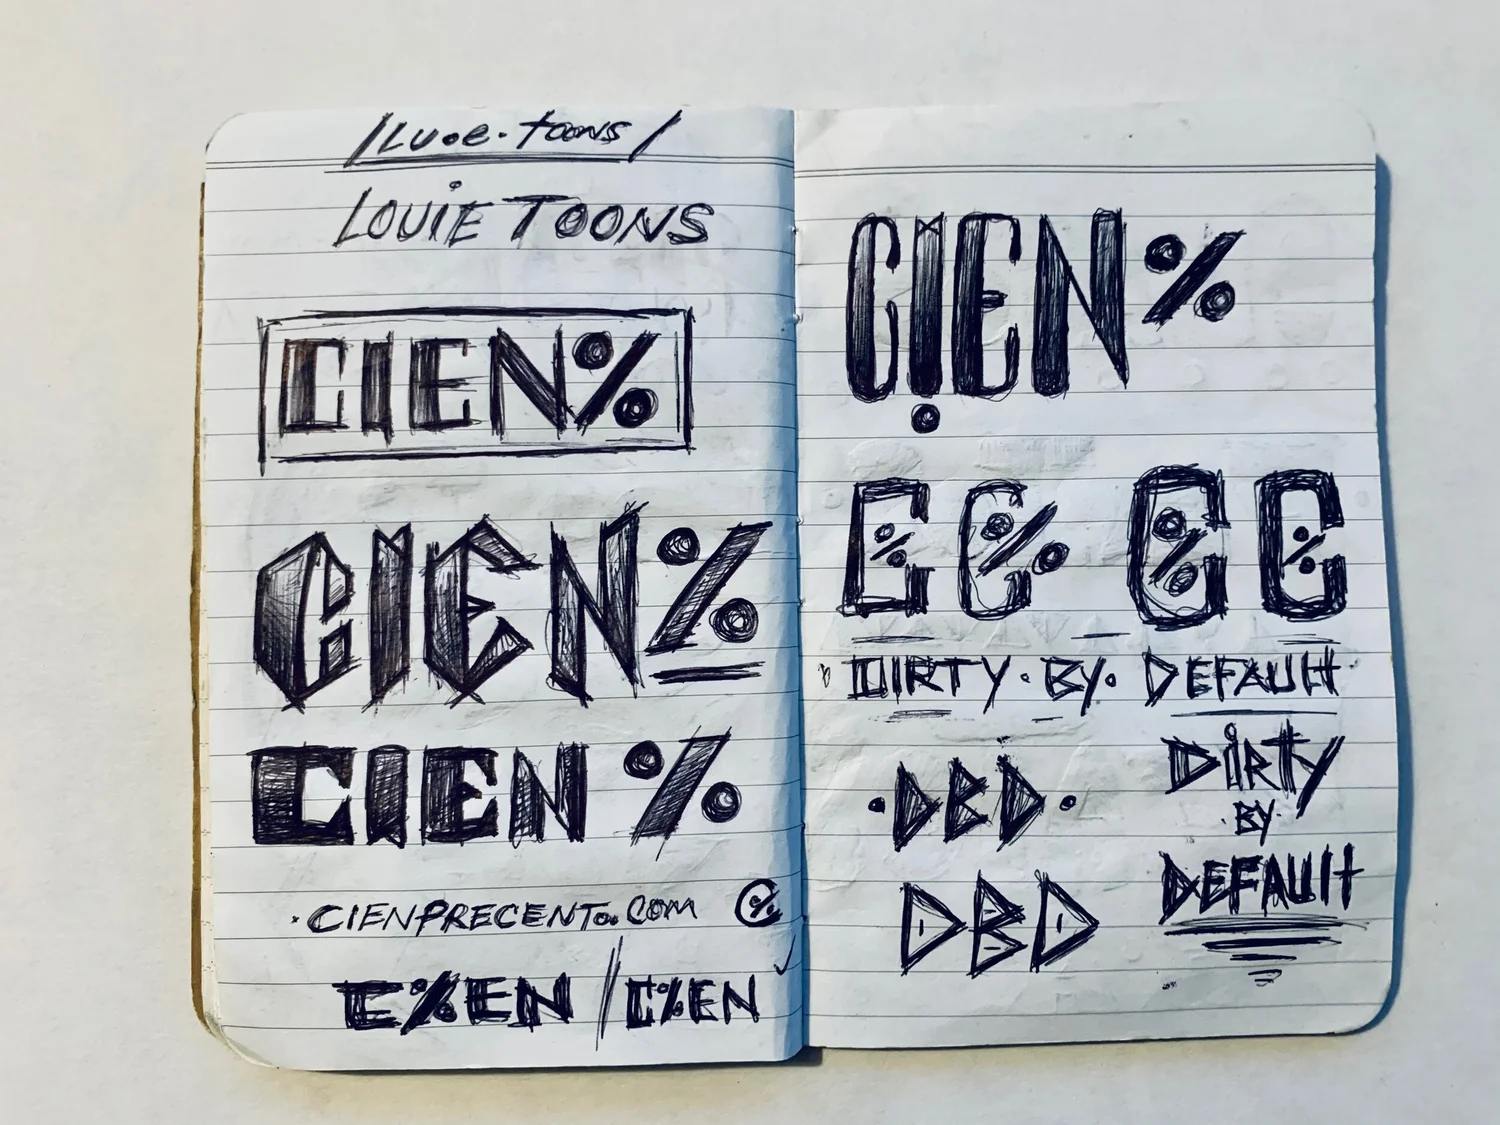 /LU.e.toons/
LOUiE TOONS
CIEN%
CIEN%
CIEN%
.CIENPRECENTo.COM C%
C%EN / C%EN
CIEN%
C% C% C% C%
DIRTY.BY.DEFAULT.
.DBD.
DiRTY
.BY.
DEFAULT
DBD